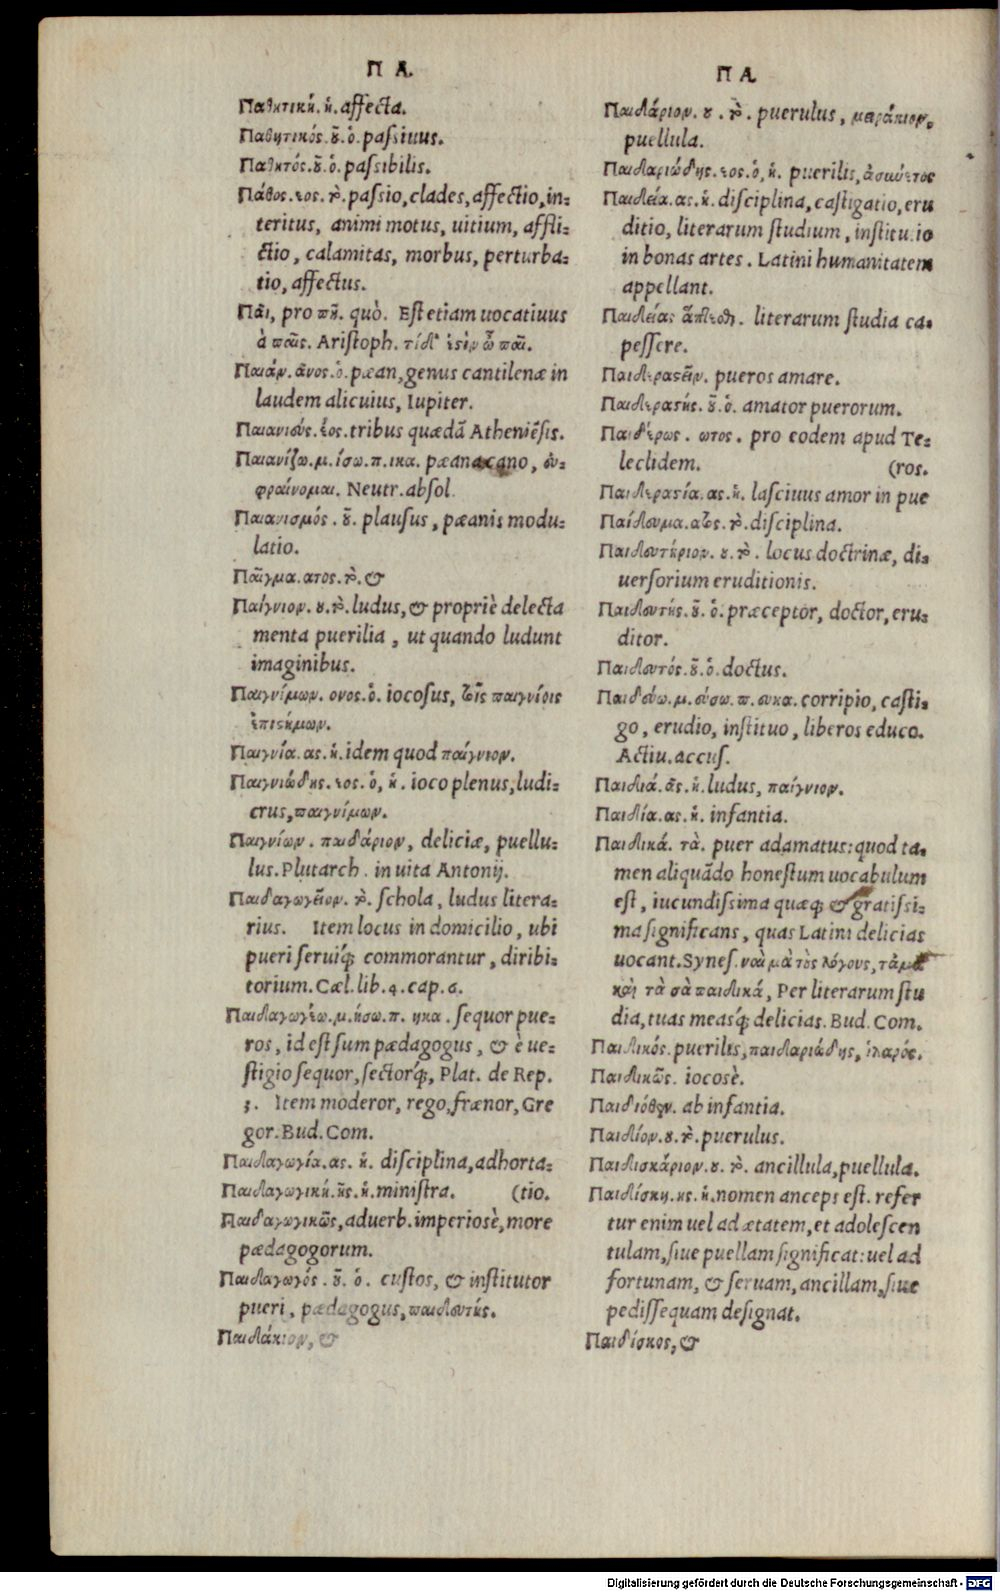 Π Α.
Παθητική. ή. affecta.
Παθητικός. οῦ. ὁ. paſsiuus.
Παθητός. οῦ. ὁ. paſsibilis.
Πάθος. εος. τὸ. paſsio, clades, affectio, in=
teritus, animi motus, uitium, affli=
ctio, calamitas, morbus, perturba=
tio, affectus.
Πᾶι, pro πῆ. quò. Eſt etiam uocatiuus
à παῖς. Ariſtoph. τίδ' ἐστὶν ὦ παῖ.
Παιάν. ᾶνος. ὁ. pæan, genus cantilenæ in
laudem alicuius, Iupiter.
Παιανιεύς. έος. tribus quædã Atheniẽſis.
Παιανίζω. μ. ίσω. π. ικα. pæana cano, εὐ=
φραίνομαι. Neutr. abſol.
Παιανισμός. οῦ. plauſus, pæanis modu=
latio.
Παῖγμα. ατος. τὸ. &
Παίγνιον. ου. τὸ. ludus, & propriè delecta
menta puerilia, ut quando ludunt
imaginibus.
Παιγνίμων. ονος. ὁ. iocoſus, τοῖς παιγνίοις
ἐπιστήμων.
Παιγνία. ας. ἡ. idem quod παίγνιον.
Παιγνιώδης. εος. ὁ, ἡ. ioco plenus, ludi=
crus, παιγνίμων.
Παιγνίων. παιδάριον, deliciæ, puellu=
lus. Plutarch. in uita Antonij.
Παιδαγωγεῖον. τὸ. ſchola, ludus litera=
rius. Item locus in domicilio, ubi
pueri ſeruiq́; commorantur, diribi=
torium. Cæl. lib. 4. cap. 6.
Παιδαγωγέω. μ. ήσω. π. ηκα. ſequor pue=
ros, id eſt ſum pædagogus, & è ue=
ſtigio ſequor, ſectorq́;, Plat. de Rep.
3. Item moderor, rego, frænor, Gre
gor. Bud. Com.
Παιδαγωγία. ας. ἡ. diſciplina, adhorta=
Παιδαγωγική. ῆς. ἡ. miniſtra. (tio.
Παιδαγωγικῶς, aduerb. imperiosè, more
pædagogorum.
Παιδαγωγός. οῦ. ὁ. cuſtos, & inſtitutor
pueri, pædagogus, παιδευτής.
Παιδάκιον, &
Π Α.
Παιδάριον. ου. τὸ. puerulus, μειράκιον,
puellula.
Παιδαριώδης. εος. ὁ, ἡ. puerilis, ἀσιώετος
Παιδεία. ας. ἡ. diſciplina, caſtigatio, eru
ditio, literarum ſtudium, inſtitutio
in bonas artes. Latini humanitatem
appellant.
Παιδείας ἅπτεσθαι. literarum ſtudia ca=
peſſere.
Παιδεραστεῖν. pueros amare.
Παιδεραστής. οῦ. ὁ. amator puerorum.
Παιδέρως. ωτος. pro eodem apud Te=
leclidem. (ros.
Παιδεραστία. ας. ἡ. laſciuus amor in pue
Παίδευμα. ατος. τὸ. diſciplina.
Παιδευτήριον. ου. τὸ. locus doctrinæ, di=
uerſorium eruditionis.
Παιδευτής. οῦ. ὁ. præceptor, doctor, eru=
ditor.
Παιδευτός. οῦ. ὁ. doctus.
Παιδεύω. μ. εύσω. π. ευκα. corripio, caſti=
go, erudio, inſtituo, liberos educo.
Actiu. accuſ.
Παιδιά. ᾶς. ἡ. ludus, παίγνιον.
Παιδία. ας. ἡ. infantia.
Παιδικά. τὰ. puer adamatus: quod ta=
men aliquãdo honeſtum uocabulum
eſt, iucundiſsima quæq́; & gratiſsi=
ma ſignificans, quas Latini delicias
uocant. Syneſ. ναὶ μὰ τοὺς λόγους, τἀμὰ
καὶ τὰ σὰ παιδικά, Per literarum ſtu
dia, tuas measq́; delicias. Bud. Com.
Παιδικός. puerilis, παιδαριώδης, ἱλαρός.
Παιδικῶς. iocosè.
Παιδιόθεν. ab infantia.
Παιδίον. ου. τὸ. puerulus.
Παιδισκάριον. ου. τὸ. ancillula, puellula.
Παιδίσκη. ης. ἡ. nomen anceps eſt. refer
tur enim uel ad ætatem, et adoleſcen
tulam, ſiue puellam ſignificat: uel ad
fortunam, & ſeruam, ancillam, ſiue
pediſſequam deſignat.
Παιδίσκος, &
Digitalisierung gefördert durch die Deutsche Forschungsgemeinschaft - DFG